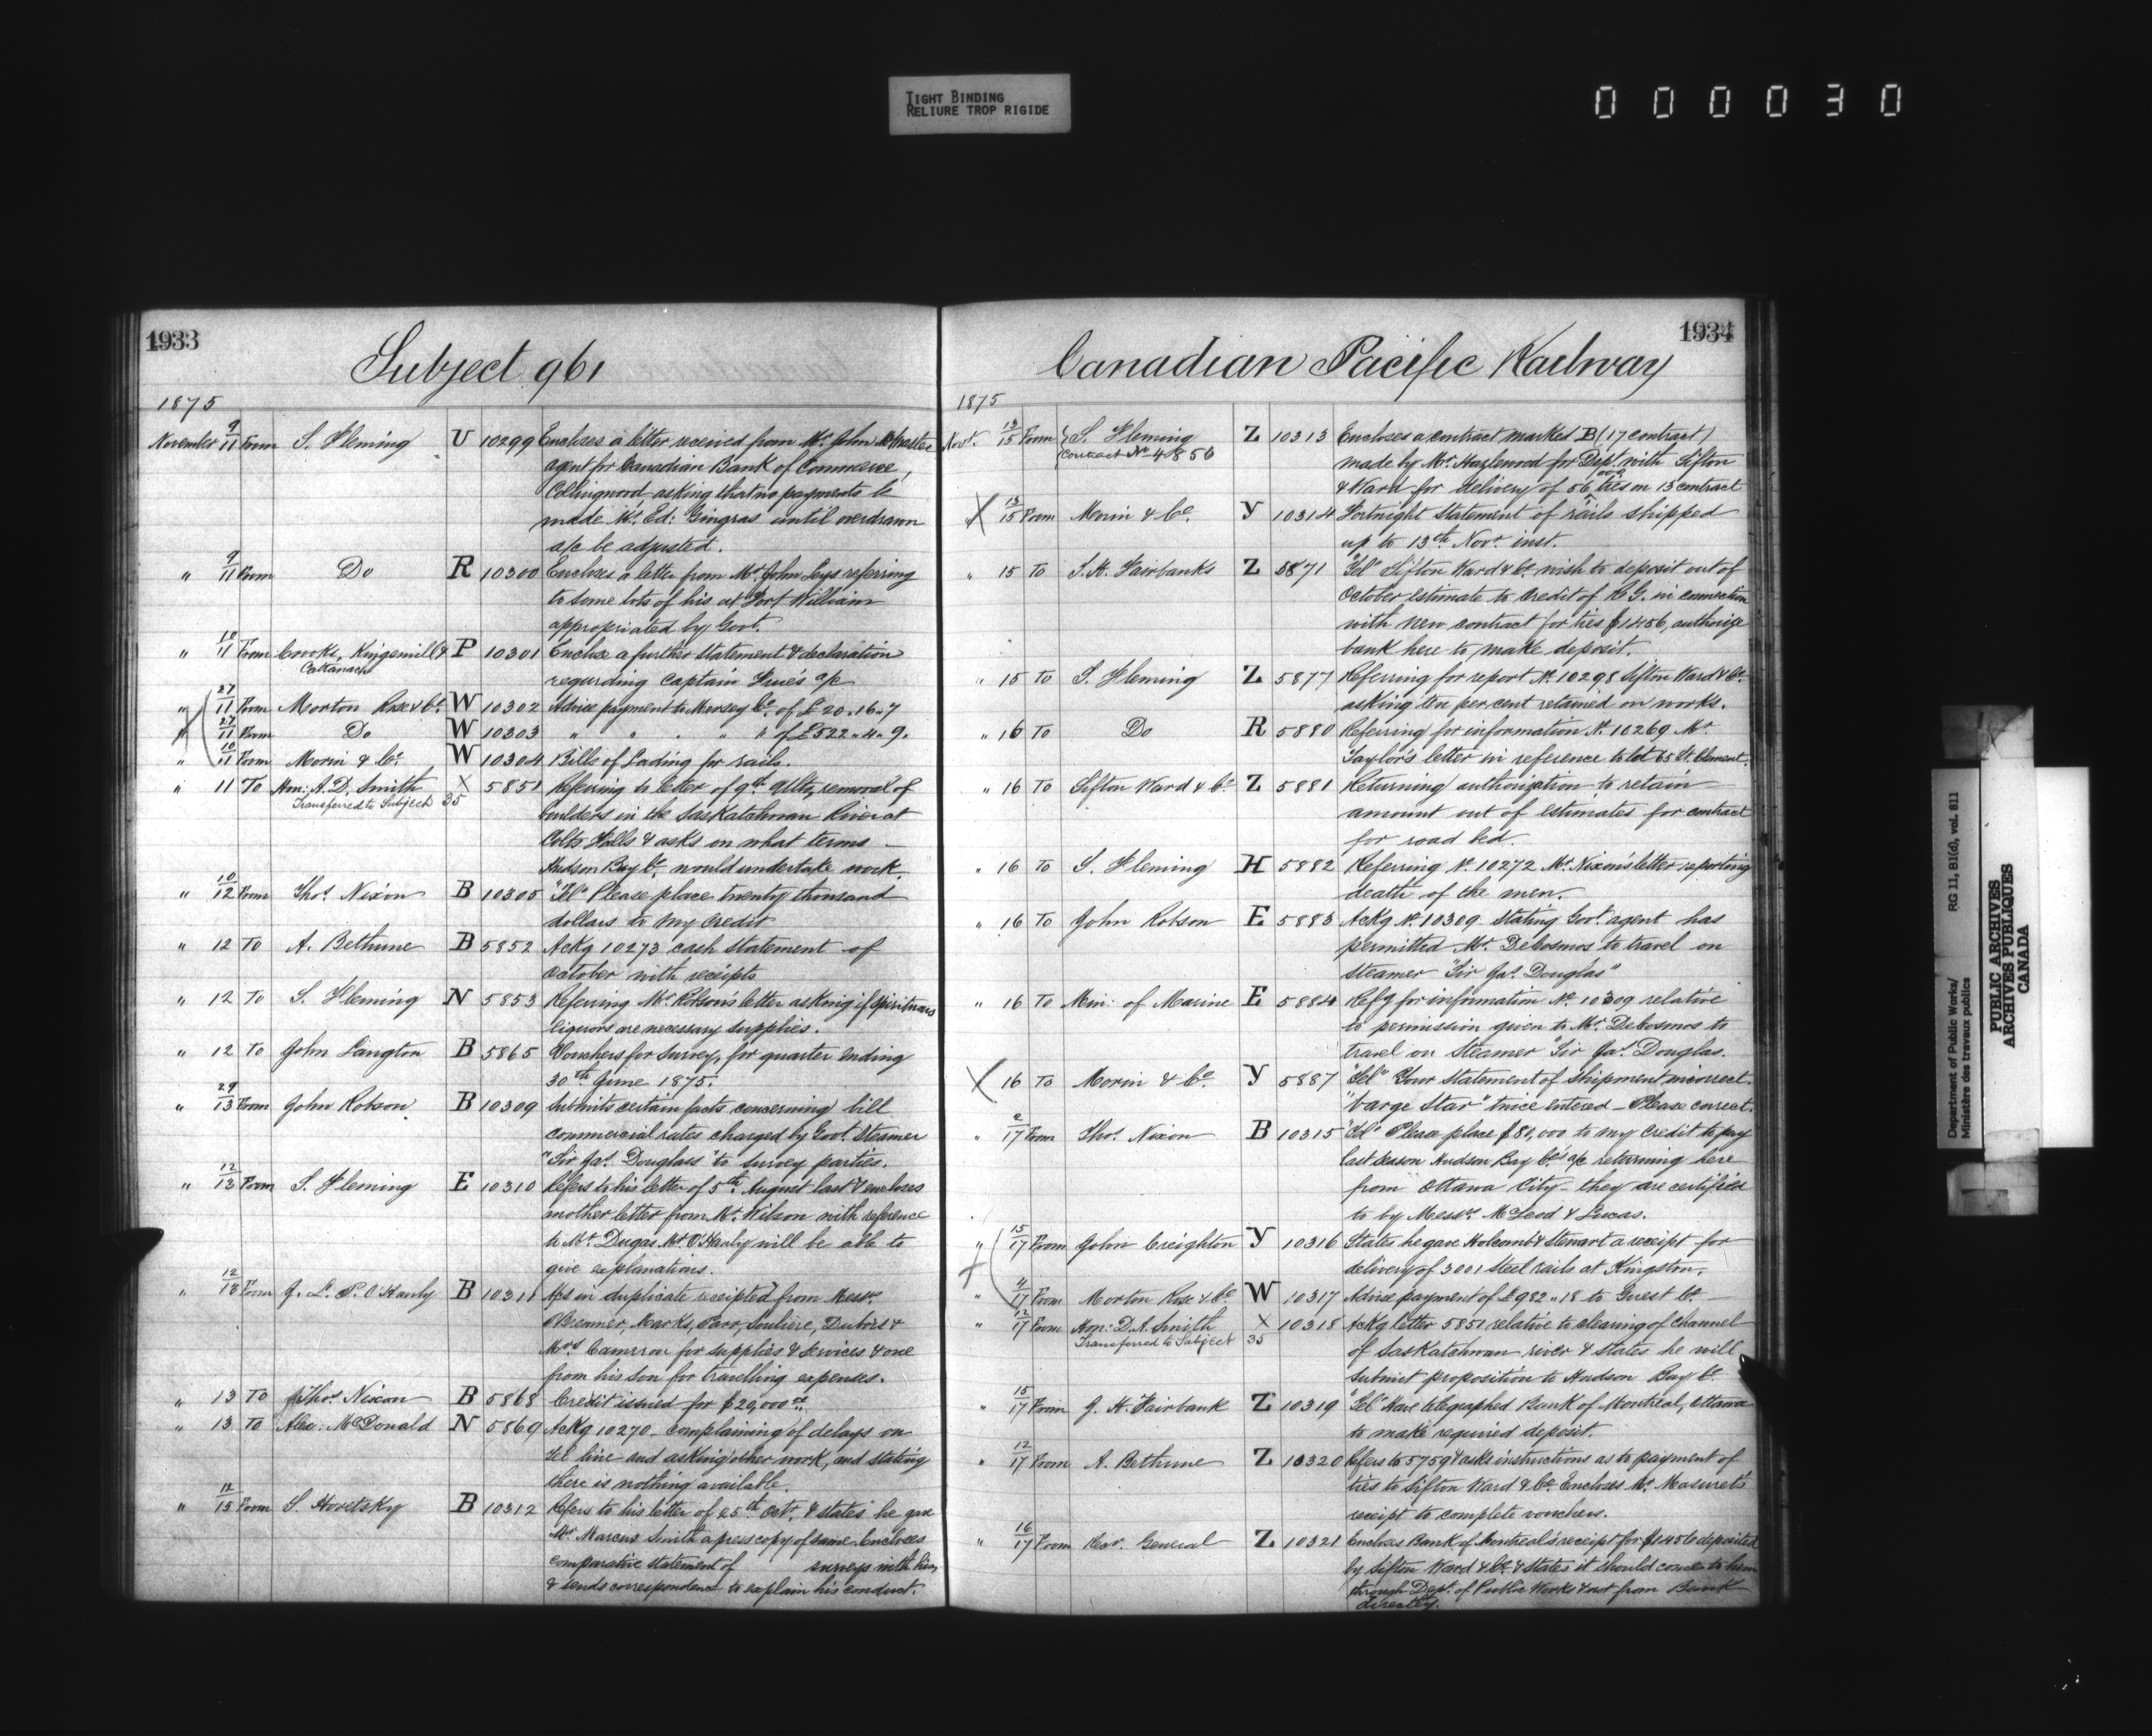 TIGHT BINDING
RELIURE TROP RIGIDE
000030
1933
Subject 961
1875
November 9/11 From S. Fleming U 10299 Encloses a letter received from Mr. John McMaster
agent for Canadian Bank of Commerce,
Collingwood asking that no payments be
made Mr. Ed: Gingras until overdrawn
a/c be adjusted.
" 9/11 From Do R 10300 Encloses a letter from Mr. John Leys referring
to some lots of his at Fort William
appropriated by Govt.
" 10/11 From Crooks, Kingsmill & P 10301 Enclose a further statement & declaration
Cattanach regarding Captain a/c
" 27/11 From Morton Rose & Co. W 10302 Advise payment to Mersey Co. of £20.16.7
" 27/11 From Do W 10303 " " " " of £522.4.9.
" 10/11 From Morin & Co. W 10304 Bills of Lading for rails.
" 11 To Hon: A. D. Smith X 5851 Referring to letter of 9th Ulto, removal of
Transferred to Subject 35 boulders in the Saskatchewan River at
Colts Falls & asks on what terms
Hudson Bay Co. would undertake work.
" 10/12 From Thos. Nixon B 10305 "Tel" Please place twenty thousand
dollars to my credit
" 12 To A. Bethune B 5852 Ackg 10273 cash statement of
October with receipts
" 12 To S. Fleming N 5853 Referring Mr. Robson's letter asking if spirituous
liquors are necessary supplies.
" 12 To John Langton B 5865 Vouchers for survey, for quarter ending
30th June 1875.
" 29/13 From John Robson B 10309 Submits certain facts concerning bill
commercial rates charged by Govt. Steamer
"Sir Jas. Douglass" to survey parties.
" 12/13 From S. Fleming E 10310 Refers to his letter of 5th August last & encloses
another letter from Mr. Wilson with reference
to Mr. Dugas Mr. O'Hanly will be able to
give explanations.
" 12/13 From J. L. P. O'Hanly B 10311 A/cs in duplicate receipted from Messrs.
Brenner, Marks, Parr, Souliere, Dubois &
Mrs. Cameron for supplies & services & one
from his son for travelling expenses.
" 13 To Thos. Nixon B 5868 Credit issued for $20,000
" 13 To Alex: McDonald N 5869 Ackg 10270 complaining of delays on
Tel line and asking other work, and stating
there is nothing available.
" 12/15 From S Horetsky B 10312 Refers to his letter of 25th Octr. & states he gave
Mr. Marcus Smith a press copy of same. Encloses
comparative statement of surveys with him,
& sends correspondence to explain his conduct.
1934
Canadian Pacific Railway
1875
Novr. 13/15 From S. Fleming Z 10313 Encloses a contract marked B (17 contract)
Contract No. 4856 made by Mr. Hazlewood for Dept. with Sifton
& Ward for delivery of 56,000 ties on 13 contract
" 13/15 From Morin & Co. Y 10314 Fortnight Statement of rails shipped
up to 13th Novr. inst.
" 15 To S. H. Fairbanks Z 5871 "Tel" Sifton Ward & Co. wish to deposit out of
October estimate to credit of R G. in connection
with new contract for ties $1456, authorize
bank here to make deposit.
" 15 To S. Fleming Z 5877 Referring for report No. 10298 Sifton Ward & Co.
asking ten per cent retained on works.
" 16 To Do R 5880 Referring for information No. 10269 Mr.
Taylor's letter in reference to lot 65 St. Clement.
" 16 To Sifton Ward & Co. Z 5881 Returning authorization to retain
amount out of estimates for contract
for road bed.
" 16 To S. Fleming H 5882 Referring No. 10272 Mr. Nixon's letter reporting
death of the men.
" 16 To John Robson E 5883 Ackg No. 10309 stating Govt. agent has
permitted Mr. Decosmos to travel on
steamer "Sir Jas. Douglas"
" 16 To Min: of Marine E 5884 Refg for information No. 10309 relative
to permission given to Mr. Decosmos to
travel on Steamer "Sir Jas. Douglas.
" 16 To Morin & Co. Y 5887 "Tel" Your statement of shipment incorrect.
"barge Star" twice entered - Please correct.
" 2/17 From Thos. Nixon B 10315 "Tel" Please place $80,000 to my credit to pay
last season Hudson Bay Co.'s a/c returning here
from Ottawa City - they are certified
to by Messrs. McLeod & Lucas.
" 15/17 From John Creighton Y 10316 States he gave Holcomb & Stewart a receipt for
delivery of 3001 Steel rails at Kingston.
" 4/17 From Morton Rose & Co. W 10317 Advise payment of £982.18 to Guest Co.
" 12/17 From Hon: D. A. Smith X 10318 Ackg letter 5851 relative to clearing of channel
Transferred to Subject 35 of Saskatchewan river & states he will
submit proposition to Hudson Bay Co.
" 15/17 From J. H. Fairbank Z 10319 "Tel" Have telegraphed Bank of Montreal, Ottawa
to make required deposit.
" 12/17 From A. Bethune Z 10320 Refers to 5759 & asks instructions as to payment of
ties to Sifton Ward & Co. Encloses Mr. Masuret's
receipt to complete vouchers.
" 16/17 From Rec. General Z 10321 Encloses Bank of Montreal's receipt for $1456 deposited
by Sifton Ward & Co. & states it should come to him
through Dept. of Public Works & not from Bank
directly.
Department of Public Works/ RG 11, B1(d), vol. 811
Ministère des travaux publics
PUBLIC ARCHIVES
ARCHIVES PUBLIQUES
CANADA